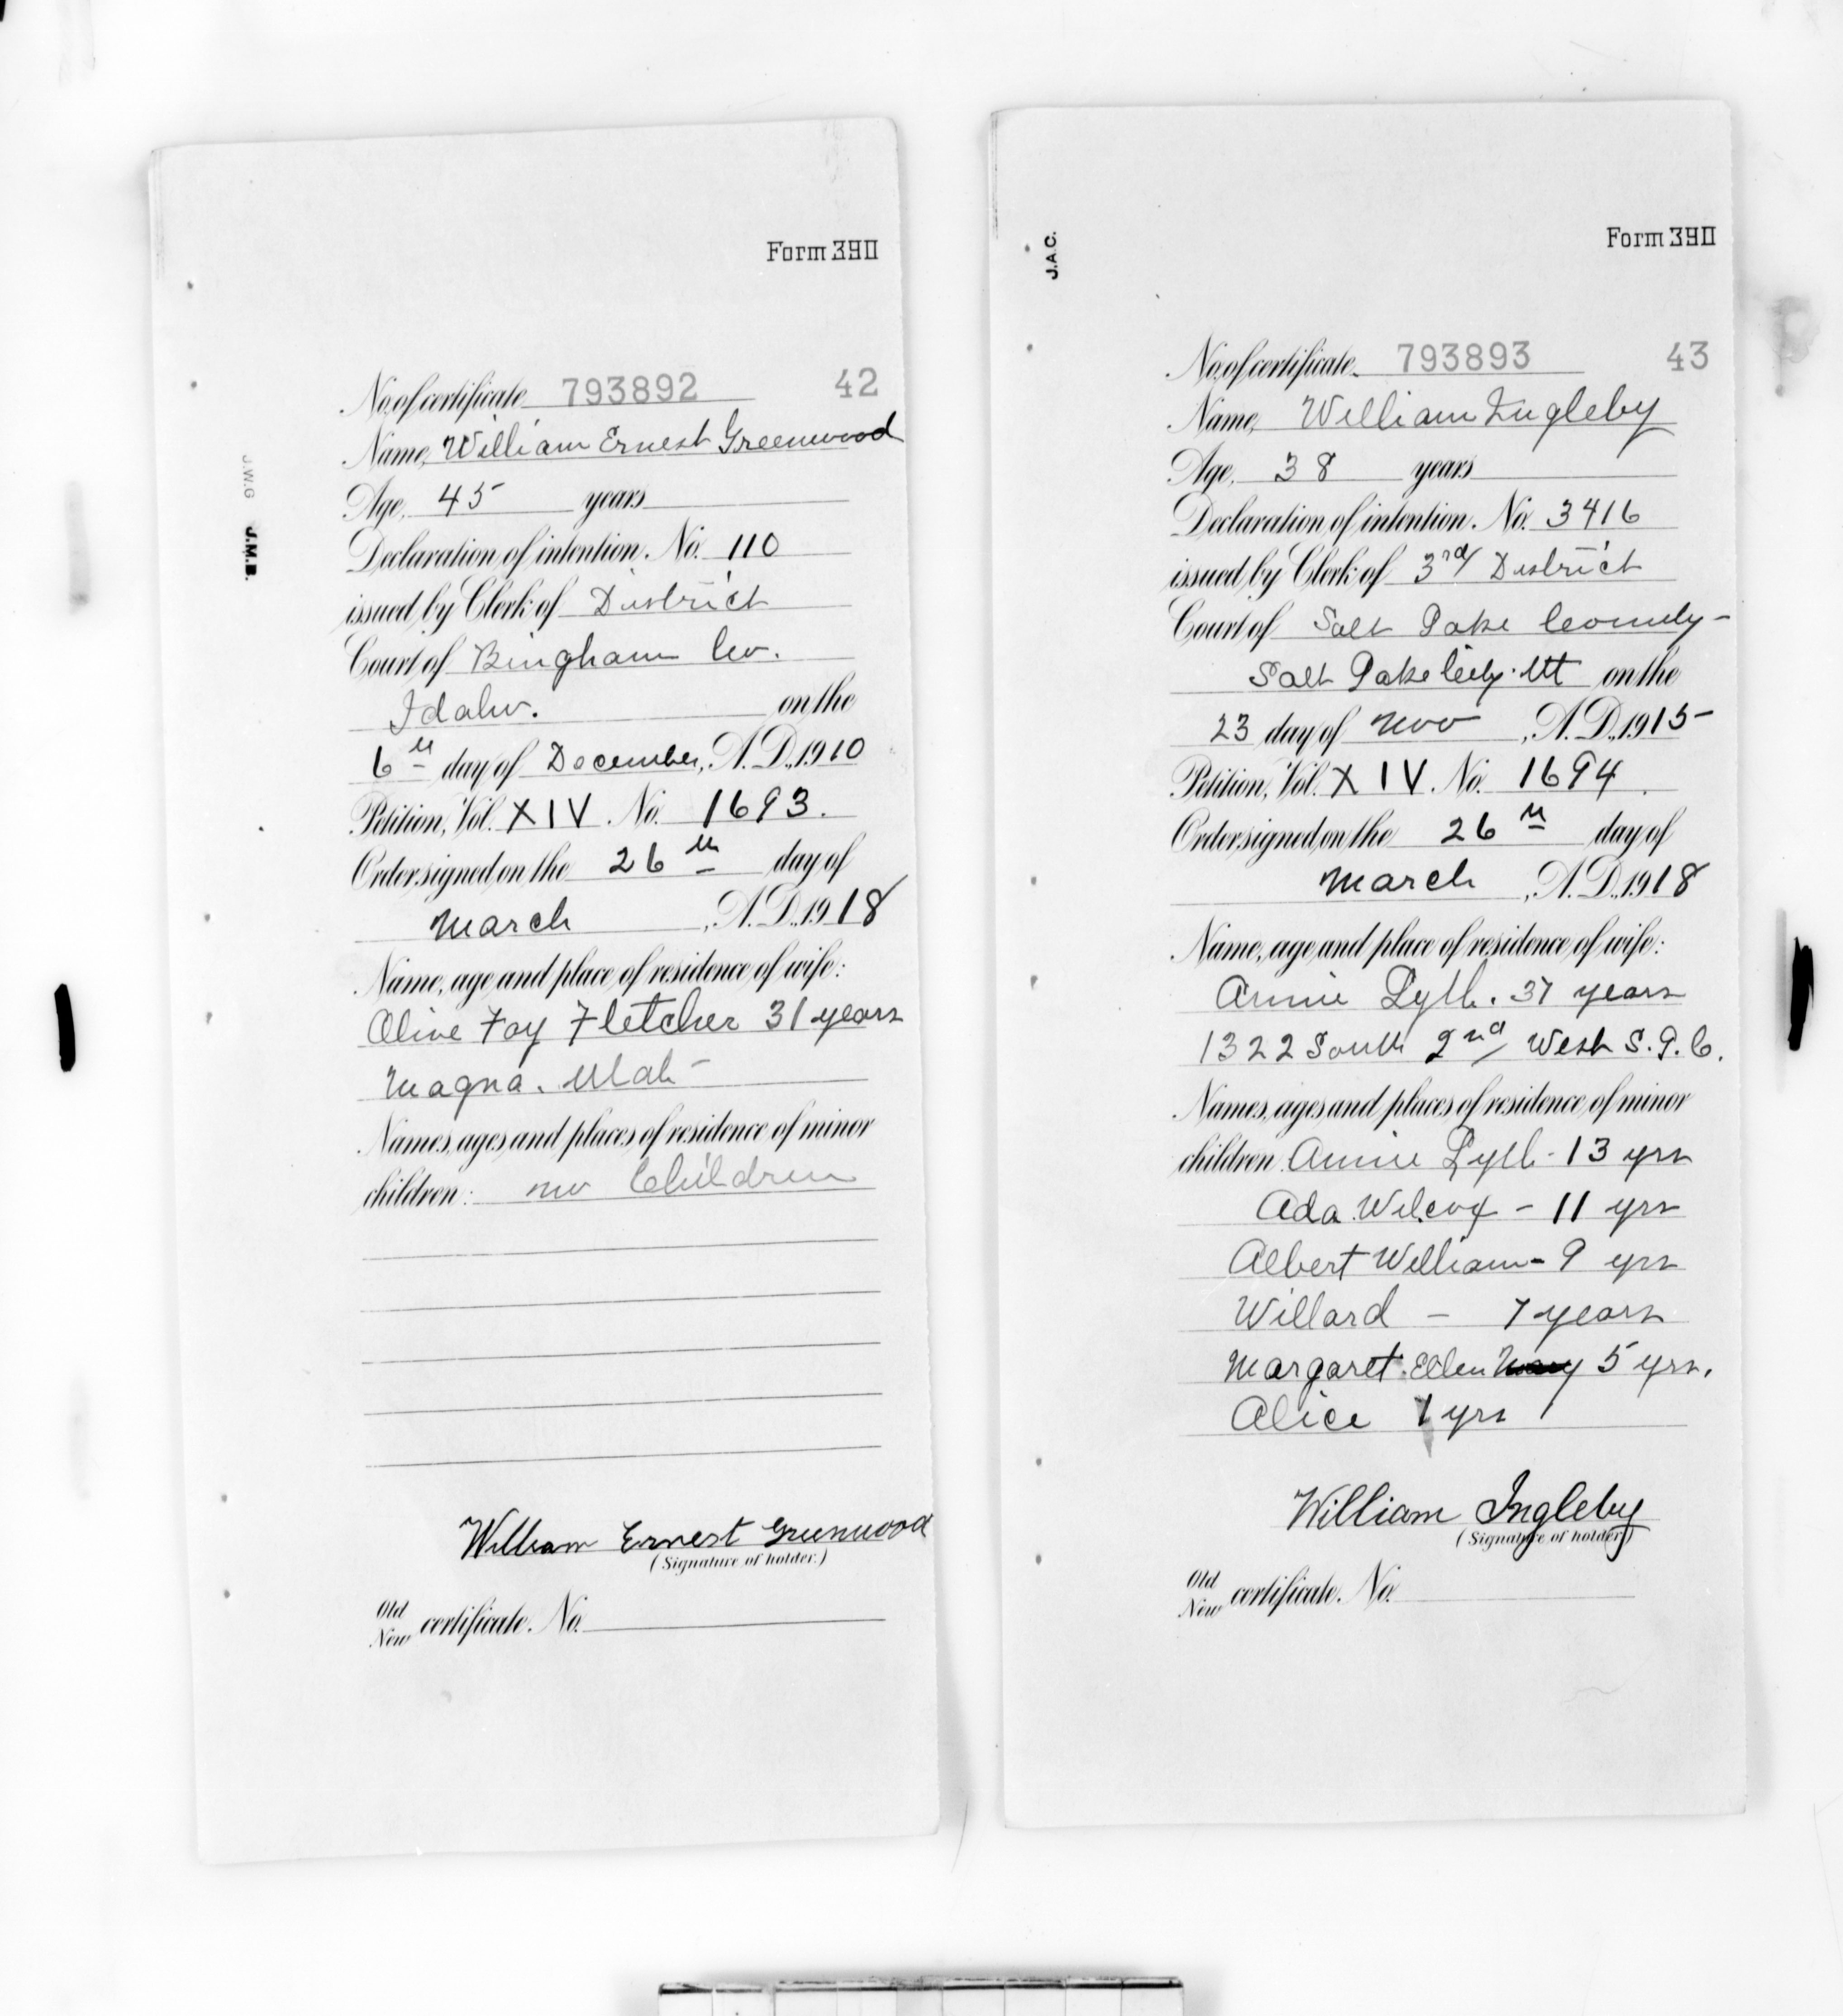 Form 390
J.W.G J.M.B.
No. of certificate 793892 42
Name, William Ernest Greenwood
Age, 45 years
Declaration of intention, No. 110
issued by Clerk of District
Court of Bingham Co.
Idaho. on the
6th day of December, A.D., 1910
Petition, Vol. XIV No. 1693.
Order signed on the 26th day of
March, A.D., 1918
Name, age and place of residence of wife:
Olive Foy Fletcher 31 years
Magna. Utah -
Names, ages and places of residence of minor
children: no Children
William Ernest Greenwood
(Signature of holder.)
Old
New certificate, No.
Form 390
J.A.C.
No. of certificate, 793893 43
Name, William Ingleby
Age, 38 years
Declaration of intention, No. 3416
issued by Clerk of 3rd District
Court of Salt Lake County -
Salt Lake City. Ut on the
23 day of Nov, A.D., 1915 -
Petition, Vol. XIV. No. 1694.
Order signed on the 26th day of
March, A.D., 1918
Name, age and place of residence of wife:
Annie Lyth. 37 years
1322 South 2nd West S.L.C.
Names, ages and places of residence of minor
children Annie Lyth - 13 yrs
Ada Wilcox - 11 yrs
Albert William - 9 yrs
Willard - 7 years
Margaret. Ellen 5 yrs.
Alice 1 yrs
William Ingleby
(Signature of holder.)
Old
New certificate, No.